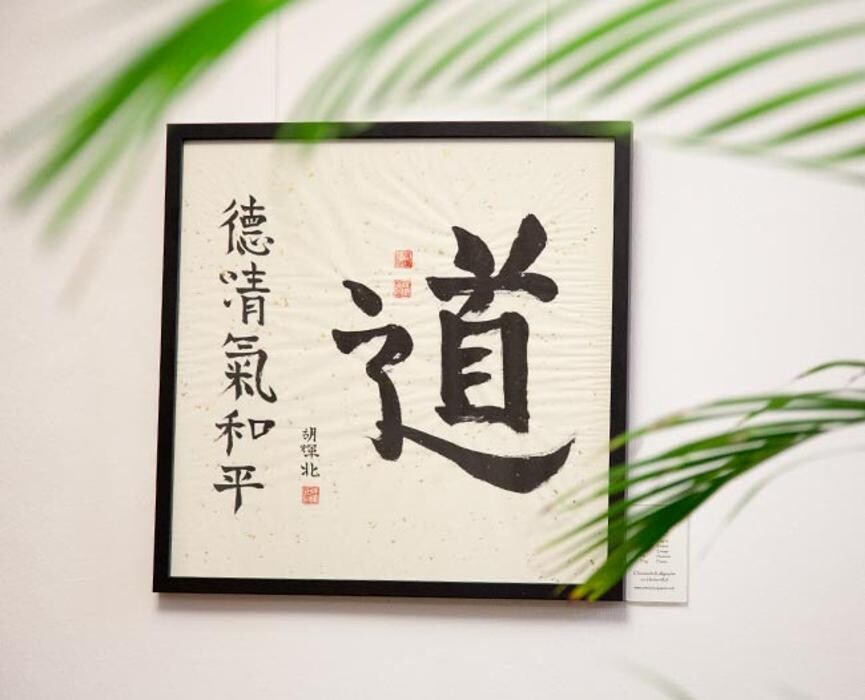 道
德情氣和平
胡輝北